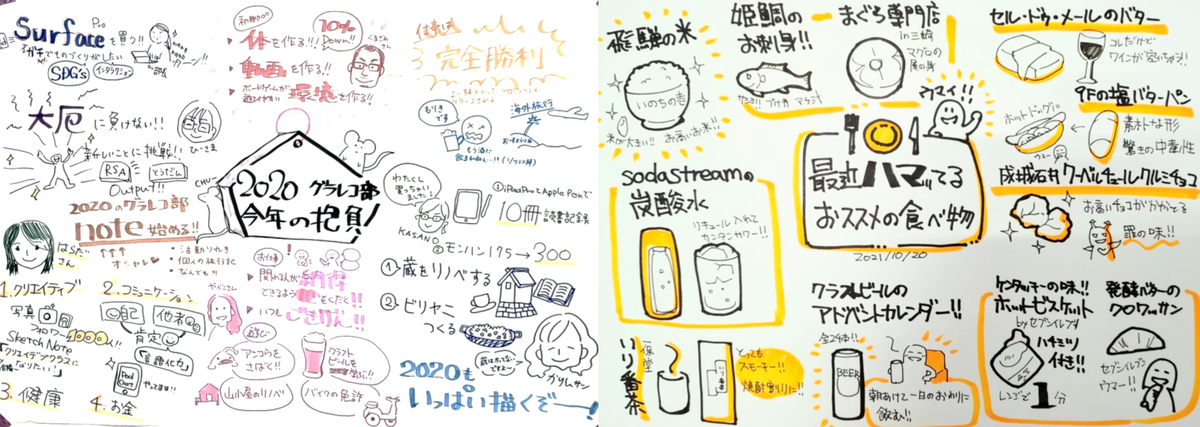 Surface Pro
を買う!!
ガチでものづくりがしたい
SDG's
インタラクション
大厄に負けない!!
ひーさま
新しいことに挑戦!!
RSA
とうだい
Output!!
2020のグラレコ部
note始める!!
オシャレ
はらださん
・活動りれき
・個人の旅行記
・なんでも!!
1.クリエイティブ
写真
フォロワー1000人!!
Sketch Note
「クリエイティブクラスになりたい」
2.コミュニケーション
自己
他者
肯定
言語化力
3.健康
4.お金
体を作る!!
10% Down!!
くまさん
動画を作る!!
ボードゲームが
遊びやすい環境を作る!!
2020 グラレコ部
今年の抱負!
CHU~
お仕事
関わる人が納得
できるような絵をかくだ!!
いつもごきげん!!
遊び
アンコウを
さばく!!
クラフト
ビールを
山小屋のリノベ
バイクの免許
仕事は
完全勝利
もりき
です
海外旅行
わたくし
買っちゃい
ました!
KASAN
①iPad ProとApple Penで
10冊
読書記録
②モンハン175→300
①蔵をリノベする
②ビリヤニ
つくる
かりんサン
2020も
いっぱい描くぞー!
飛騨の米
いのちの壱
米が大きい!!
お高いお米!!
姫鯛の
お刺身!!
まぐろ専門店
in三崎
マグロの
尾の身
ウマイ!!
セル・ドゥ・メールのバター
コレだけで
ワインが空いちゃう!!
9Fの塩バターパン
ホットドッグに
素朴な形
驚きの中毒性
成城石井 クーベルチュールクルミチョコ
お高いチョコがかかってる
罪の味!!
最近ハマってる
おススメの食べ物
2021/10/20
sodastreamの
炭酸水
リキュール入れて
カンタンサワー!!
いり番茶
一保堂
いり番茶
とっても
スモーキー!!
焼酎割りに!!
クラフトビールの
アドベントカレンダー!!
全24本!!
BEER
朝あけて一日のおわりに
飲む!!
ケンタッキーの味!!
ホットビスケット
byセブンイレブン
ハチミツ
付き!!
レンジで1分
発酵バターの
クロワッサン
セブンイレブン
ウマー!!